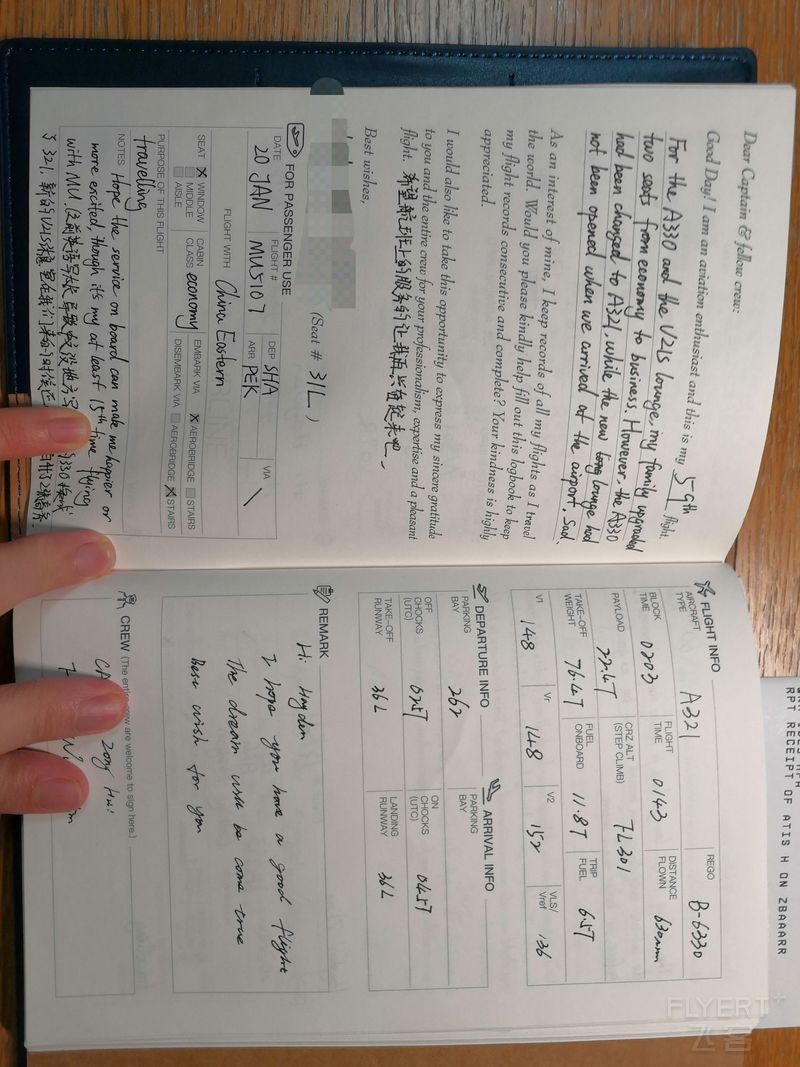 Dear Captain & fellow crew:
Good Day! I am an aviation enthusiast and this is my 59th flight.
For the A330 and the V2LS lounge, my family upgraded
two seats from economy to business. However, the A330
had been changed to A321, while the new lounge had
not been opened when we arrived at the airport. Sad.
As an interest of mine, I keep records of all my flights as I travel
the world. Would you please kindly help fill out this logbook to keep
my flight records consecutive and complete? Your kindness is highly
appreciated.
I would also like to take this opportunity to express my sincere gratitude
to you and the entire crew for your professionalism, expertise and a pleasant
flight. 希望航班上的服务能让我再兴奋起来吧~
Best wishes,
(Seat # 31L )
FOR PASSENGER USE
DATE 20 JAN
FLIGHT # MU5107
DEP SHA
ARR PEK
VIA \
FLIGHT WITH China Eastern
SEAT X WINDOW MIDDLE AISLE
CABIN CLASS economy
EMBARK VIA X AEROBRIDGE STAIRS
DISEMBARK VIA AEROBRIDGE X STAIRS
PURPOSE OF THIS FLIGHT
travelling
NOTES Hope the service on board can make me happier or
more excited, though it's my at least 15th time flying
with MU.
FLIGHT INFO
AIRCRAFT TYPE A321
REGO B-6330
BLOCK TIME 0203
FLIGHT TIME 0143
DISTANCE FLOWN 630nm
PAYLOAD 22.4T
CRZ ALT (STEP CLIMB) FL301
TAKE-OFF WEIGHT 76.4T
FUEL ONBOARD 11.8T
TRIP FUEL 6.5T
V1 148
Vr 148
V2 152
VLS/Vref 136
DEPARTURE INFO
PARKING BAY 262
OFF CHOCKS (UTC) 0257
TAKE-OFF RUNWAY 36L
ARRIVAL INFO
PARKING BAY
ON CHOCKS (UTC) 0457
LANDING RUNWAY 36L
REMARK
Hi Hayden
I hope you have a good flight
The dream will be come true
Best wish for you
CREW (The entire crew are welcome to sign here.)
RPT RECEIPT OF ATIS H ON ZBAAARR
FLYERT
飞客